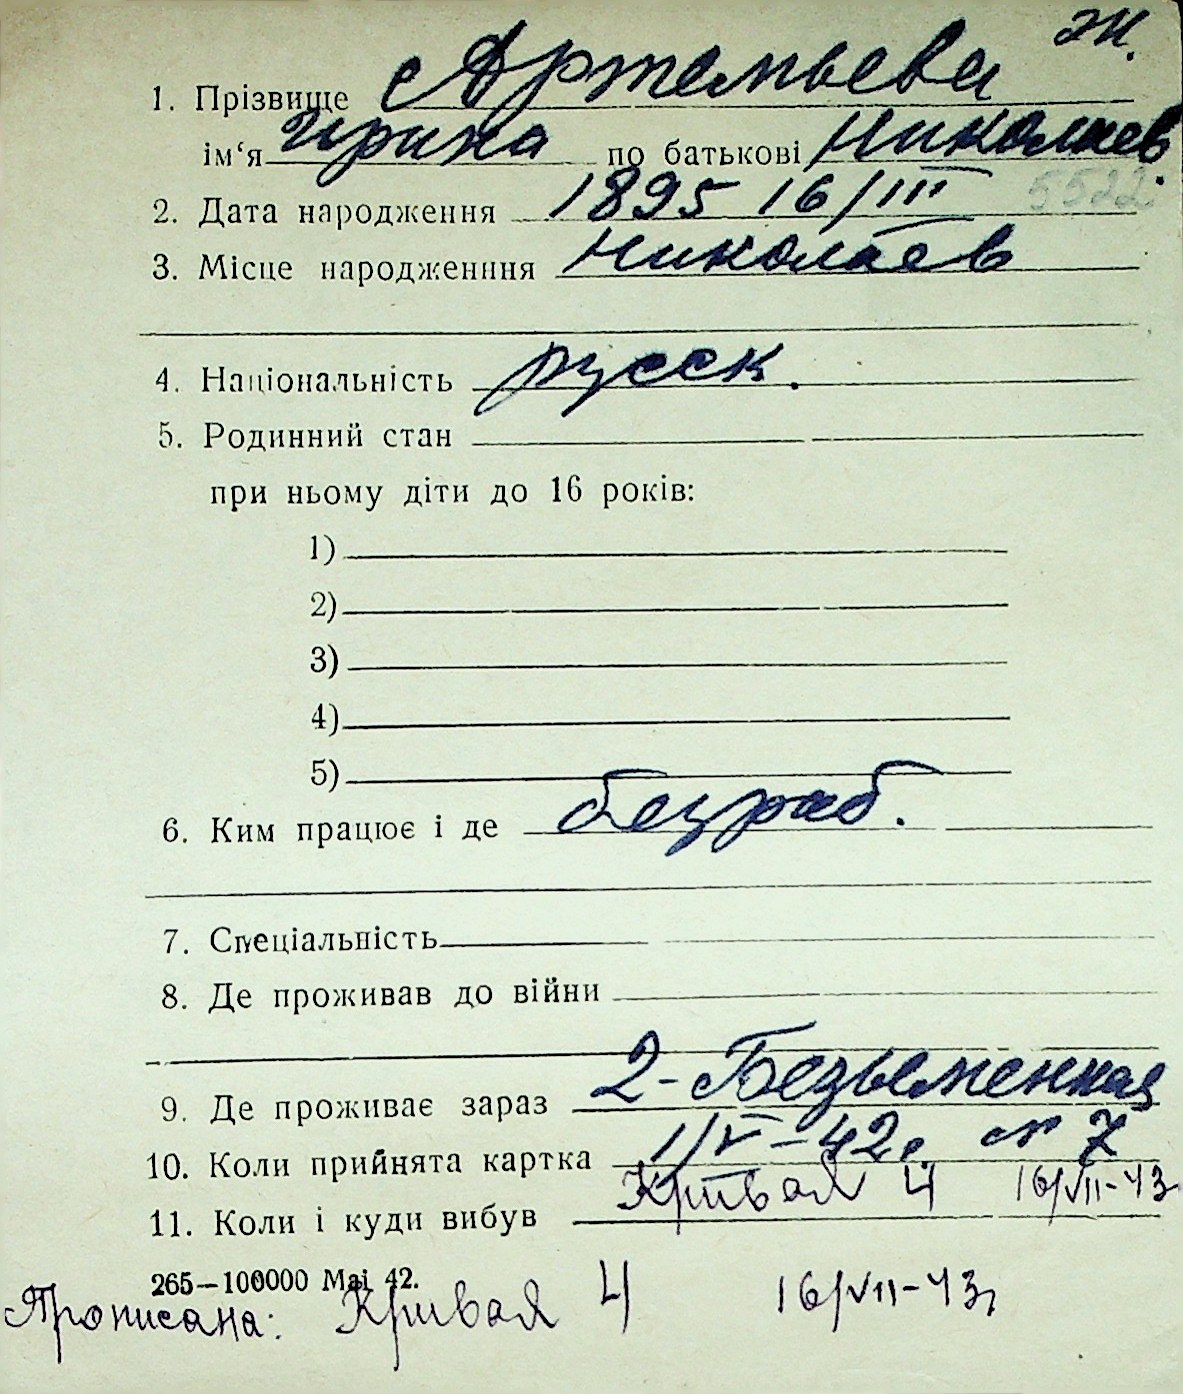 ж.
1. Прізвище Артемьева
ім‘я Ирина по батькові Николаев.
2. Дата народження 1895 16/III 5522
3. Місце народженння Николаев
4. Національність русск.
5. Родинний стан
при ньому діти до 16 років:
1)
2)
3)
4)
5)
6. Ким працює і де безраб.
7. Спеціальність
8. Де проживав до війни
9. Де проживає зараз 2-Безыменная
10. Коли прийнята картка 1/V-42г. № 7
11. Коли і куди вибув Кривая 4 16/VII-43
265—100000 Маі 42.
Прописана: Кривая 4 16/VII-43г